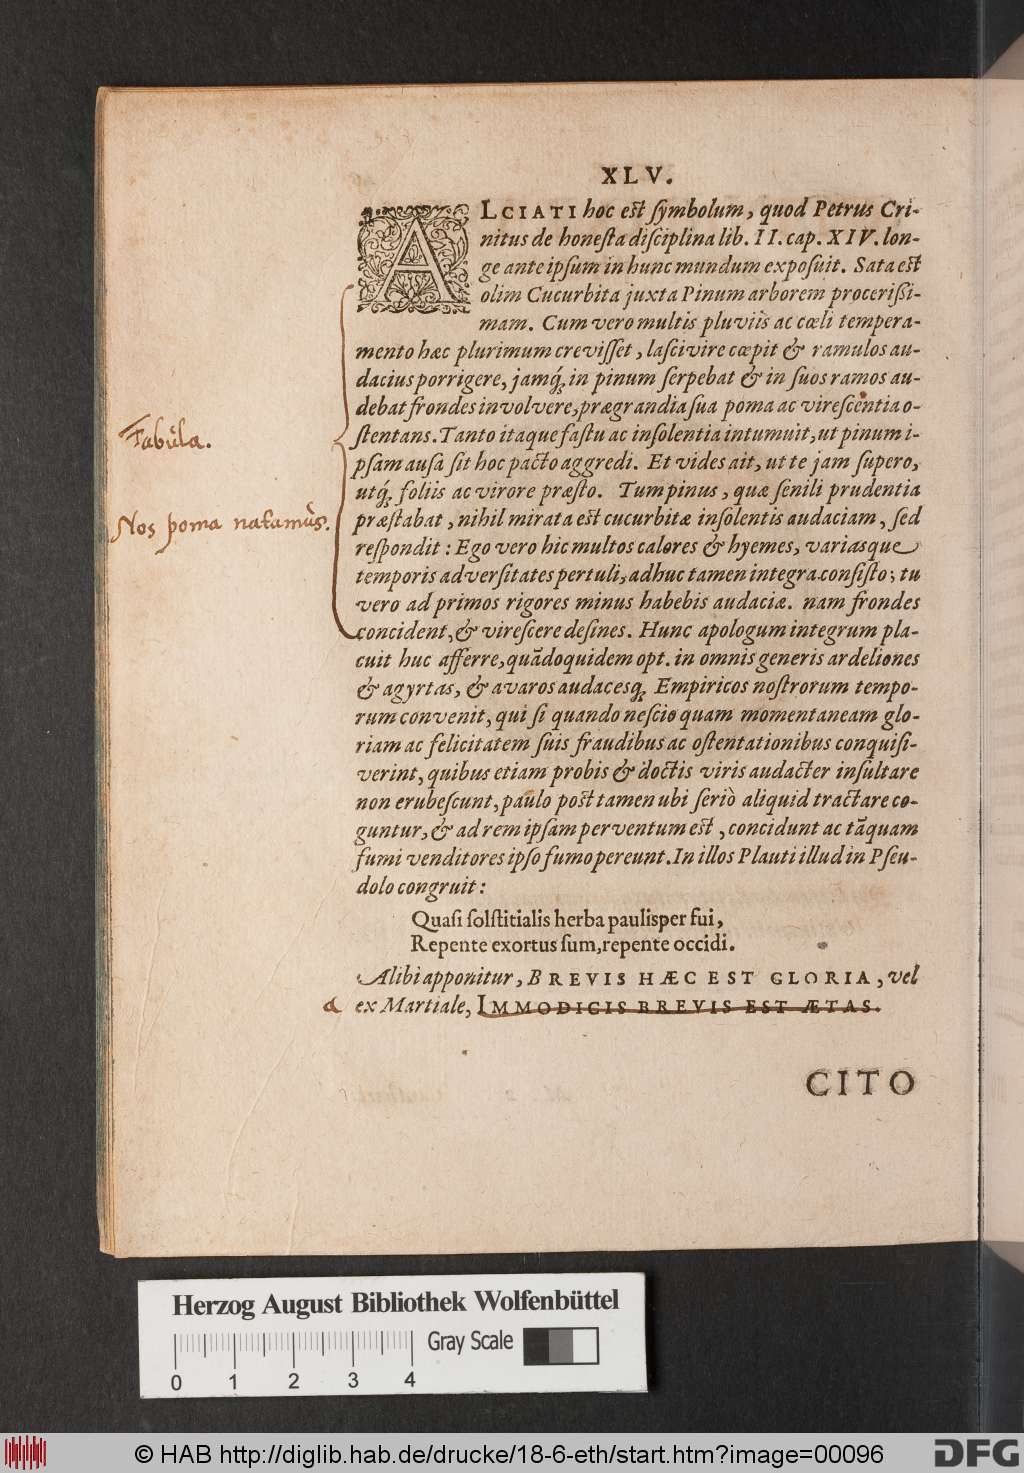 XLV.
ALCIATI hoc est symbolum, quod Petrus Cri-
nitus de honesta disciplina lib. II. cap. XIV. lon-
ge ante ipsum in hunc mundum exposuit. Sata est
olim Cucurbita juxta Pinum arborem procerissi-
mam. Cum vero multis pluviis ac cœli tempera-
mento hæc plurimum crevisset, lascivire cœpit & ramulos au-
dacius porrigere, jamq́; in pinum serpebat & in suos ramos au-
debat frondes involvere, prægrandia sua poma ac virescentia o-
stentans. Tanto itaque fastu ac insolentia intumuit, ut pinum i-
psam ausa sit hoc pacto aggredi. Et vides ait, ut te jam supero,
utq́; foliis ac virore præsto. Tum pinus, quæ senili prudentia
præstabat, nihil mirata est cucurbitæ insolentis audaciam, sed
respondit: Ego vero hic multos calores & hyemes, variasque
temporis adversitates pertuli, adhuc tamen integra consisto; tu
vero ad primos rigores minus habebis audaciæ. nam frondes
concident, & virescere desines. Hunc apologum integrum pla-
cuit huc afferre, quãdoquidem opt. in omnis generis ardeliones
& agyrtas, & avaros audacesq; Empiricos nostrorum tempo-
rum convenit, qui si quando nescio quam momentaneam glo-
riam ac felicitatem suis fraudibus ac ostentationibus conquisi-
verint, quibus etiam probis & doctis viris audacter insultare
non erubescunt, paulo post tamen ubi seriò aliquid tractare co-
guntur, & ad rem ipsam perventum est, concidunt ac tãquam
fumi venditores ipso fumo pereunt. In illos Plauti illud in Pseu-
dolo congruit:
Quasi solstitialis herba paulisper fui,
Repente exortus sum, repente occidi.
Alibi apponitur, BREVIS HÆC EST GLORIA, vel
a ex Martiale, IMMODICIS BREVIS EST ÆTAS.
CITO
Fabula.
Nos poma natamus.
Herzog August Bibliothek Wolfenbüttel
Gray Scale
0 1 2 3 4
© HAB http://diglib.hab.de/drucke/18-6-eth/start.htm?image=00096
DFG